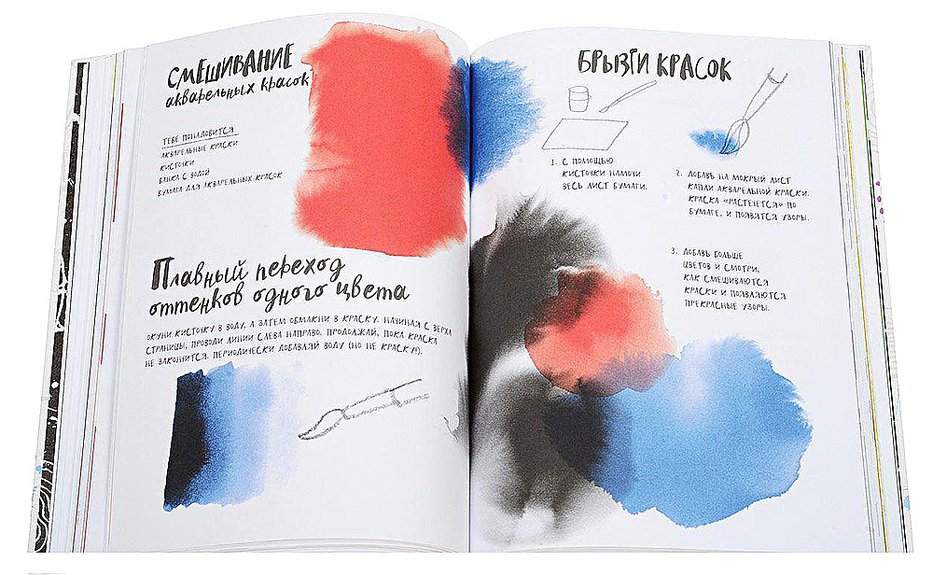 СМЕШИВАНИЕ
акварельных красок
ТЕБЕ ПОНАДОБИТСЯ
АКВАРЕЛЬНЫЕ КРАСКИ
КИСТОЧКИ
БАНКА С ВОДОЙ
БУМАГА ДЛЯ АКВАРЕЛЬНЫХ КРАСОК
Плавный переход
оттенков одного цвета
ОКУНИ КИСТОЧКУ В ВОДУ, А ЗАТЕМ ОБМАКНИ В КРАСКУ. НАЧИНАЯ С ВЕРХА
СТРАНИЦЫ, ПРОВОДИ ЛИНИИ СЛЕВА НАПРАВО. ПРОДОЛЖАЙ, ПОКА КРАСКА
НЕ ЗАКОНЧИТСЯ. ПЕРИОДИЧЕСКИ ДОБАВЛЯЙ ВОДУ (НО НЕ КРАСКУ!).
БРЫЗГИ КРАСОК
1. С ПОМОЩЬЮ
КИСТОЧКИ НАМОЧИ
ВЕСЬ ЛИСТ БУМАГИ.
2. ДОБАВЬ НА МОКРЫЙ ЛИСТ
КАПЛИ АКВАРЕЛЬНОЙ КРАСКИ.
КРАСКА «РАСТЕЧЕТСЯ» ПО
БУМАГЕ, И ПОЯВЯТСЯ УЗОРЫ.
3. ДОБАВЬ БОЛЬШЕ
ЦВЕТОВ И СМОТРИ,
КАК СМЕШИВАЮТСЯ
КРАСКИ И ПОЯВЛЯЮТСЯ
ПРЕКРАСНЫЕ УЗОРЫ.